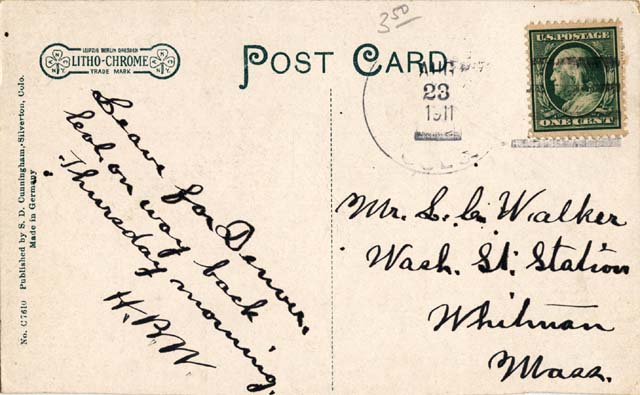 3.50
LEIPZIG BERLIN DRESDEN
LITHO-CHROME
TRADE MARK
N Y
N Y
POST CARD
AUG
23
1911
COLO
U.S. POSTAGE
ONE CENT
No. C7610 Published by S. D. Cunningham, Silverton, Colo.
Made in Germany
Leave for Denver
on way back
Thursday morning.
H.B.W.
Mr. L. C. Walker
Wash. St. Station
Whitman
Mass.